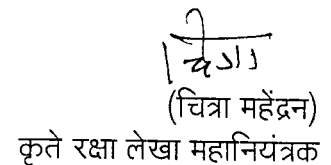 (चित्रा महेंद्रन)
कृते रक्षा लेखा महानियंत्रक